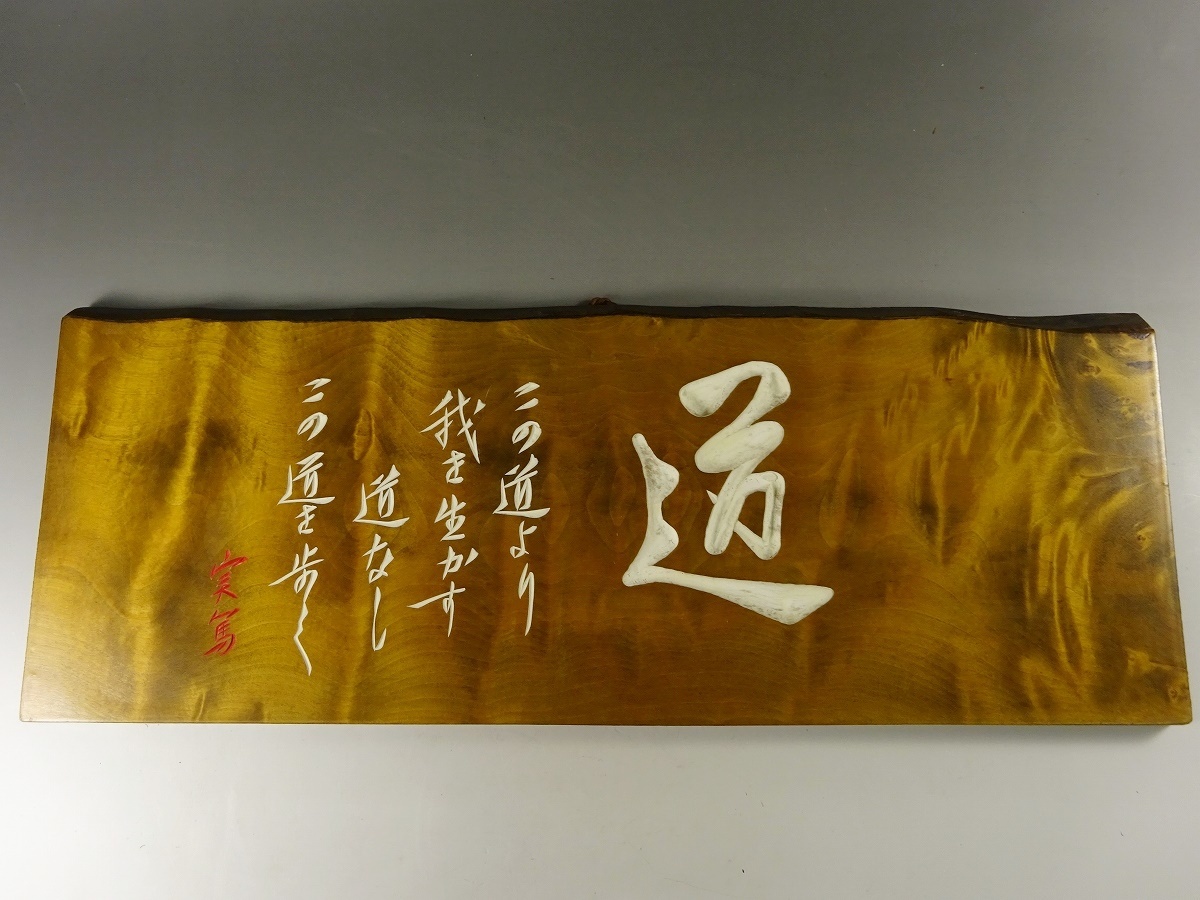 道
この道より
我を生かす
道なし
この道を歩く
実篤